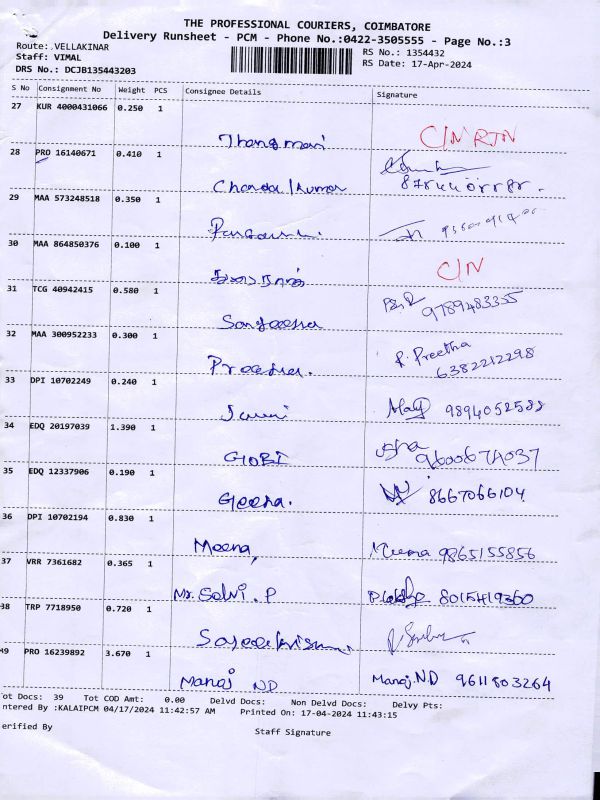 THE PROFESSIONAL COURIERS, COIMBATORE
Delivery Runsheet - PCM - Phone No.:0422-3505555 - Page No.:3
Route: VELLAKINAR
Staff: VIMAL
DRS No.: DCJB135443203
RS No.: 1354432
RS Date: 17-Apr-2024
S No Consignment No Weight PCS Consignee Details Signature
27 KUR 4000431066 0.250 1
Thangmani C/N RTN
28 PRO 16140671 0.410 1
Kumar
29 MAA 573248518 0.350 1
30 MAA 864850376 0.100 1
C/N
31 TCG 40942415 0.580 1
Sangeetha 9789483355
32 MAA 300952233 0.300 1
Preetha. P. Preetha
6382212298
33 DPI 10702249 0.240 1
9894052588
34 EDQ 20197039 1.390 1
GOBI 9600674037
35 EDQ 12337906 0.190 1
Geetha. 8667066104
36 DPI 10702194 0.830 1
Meena, Meena 9865155856
37 VRR 7361682 0.365 1
Mr. Selvi. P 8015419360
38 TRP 7718950 0.720 1
49 PRO 16239892 3.670 1
Manoj ND Manoj.ND 9611803264
ot Docs: 39 Tot COD Amt: 0.00 Delvd Docs: Non Delvd Docs: Delvy Pts:
ntered By :KALAIPCM 04/17/2024 11:42:57 AM Printed On: 17-04-2024 11:43:15
erified By Staff Signature